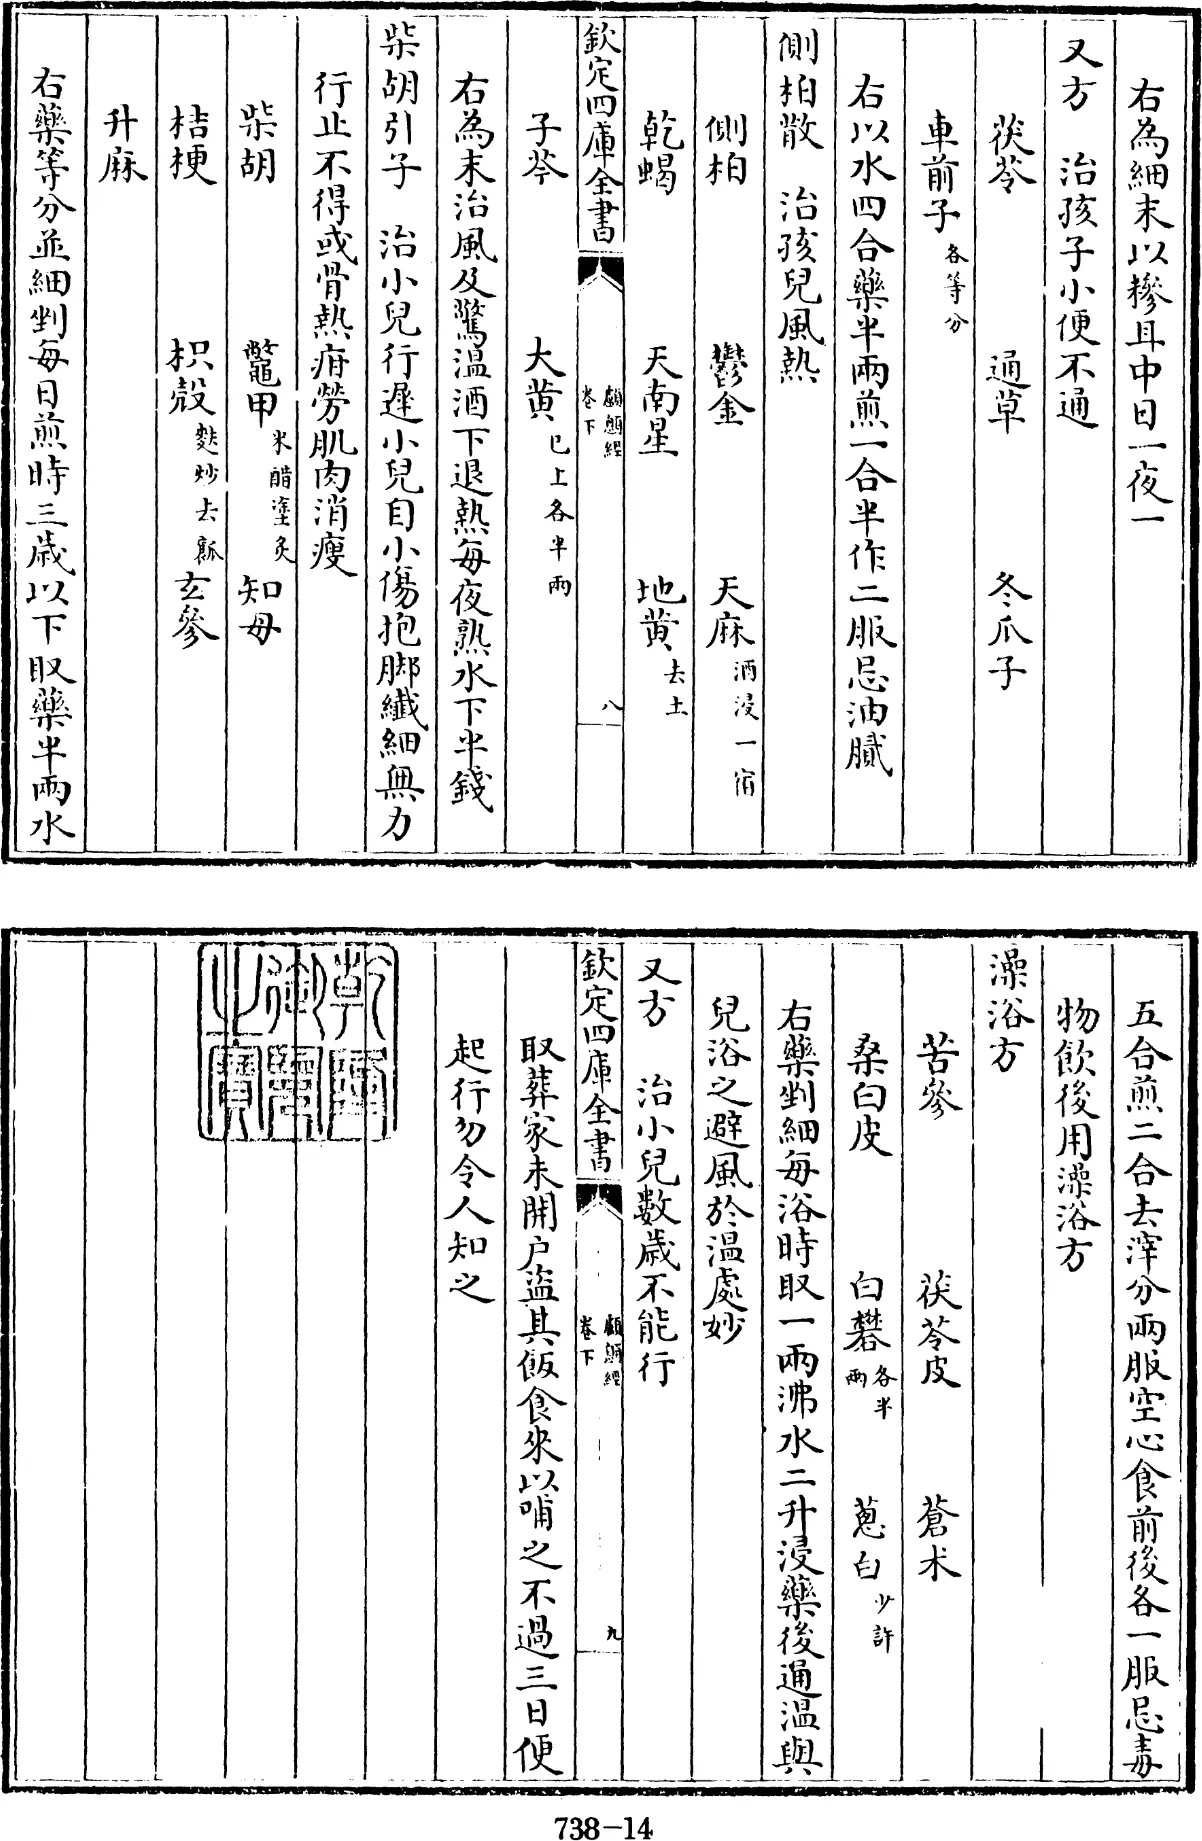 右為細末以糝耳中日一夜一
又方　治孩子小便不通
茯苓　通草　冬瓜子
車前子各等分
右以水四合藥半兩煎一合半作二服忌油膩
側柏散　治孩兒風熱
側柏　鬱金　天麻酒浸一宿
乾蝎　天南星　地黄去土
欽定四庫全書　顱顖經卷下　八
子芩　大黄已上各半兩
右為末治風及驚温酒下退熱每夜熟水下半錢
柴胡引子　治小兒行遲小兒自小傷抱脚纖細無力
行止不得或骨熱疳勞肌肉消瘦
柴胡　鼈甲米醋塗炙　知母
桔梗　枳殻麩炒去瓤　玄參
升麻
右藥等分並細剉每日煎時三歳以下取藥半兩水
五合煎二合去滓分兩服空心食前後各一服忌毒
物飲後用澡浴方
澡浴方
苦參　茯苓皮　蒼术
桑白皮　白礬各半兩　葱白少許
右藥剉細每浴時取一兩沸水二升浸藥後通温與
兒浴之避風於温處妙
又方　治小兒數歳不能行
欽定四庫全書　顱顖經卷下　九
取葬家未開户盜其飯食來以哺之不過三日便
起行勿令人知之
乾隆御覽之寶
738-14